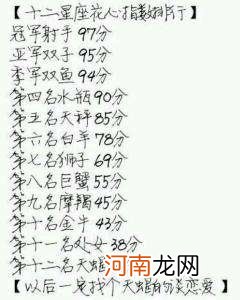 【十二星座花心指数排行】
冠军射手 97分
亚军双子 95分
季军双鱼 94分
第四名水瓶 90分
第五名天秤 85分
第六名白羊 78分
第七名狮子 69分
第八名巨蟹 55分
第九名摩羯 45分
第十名金牛 43分
第十一名处女 38分
第十二名天蝎
【以后一定找个天蝎的谈恋爱】
康龙网